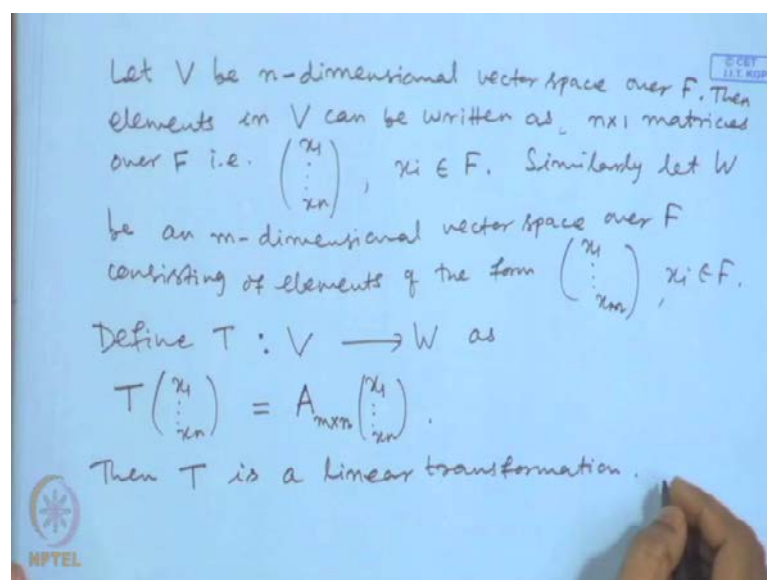 Let V be n-dimensional vector space over F. Then
elements in V can be written as, n×1 matrices
over F i.e. (x₁ ⋮ xₙ), xi ∈ F. Similarly let W
be an m-dimensional vector space over F
consisting of elements of the form (x₁ ⋮ xₘ), xi ∈ F.
Define T : V ⟶ W as
T(x₁ ⋮ xₙ) = Aₘₓₙ(x₁ ⋮ xₙ).
Then T is a linear transformation.
© CET
I.I.T. KGP
NPTEL